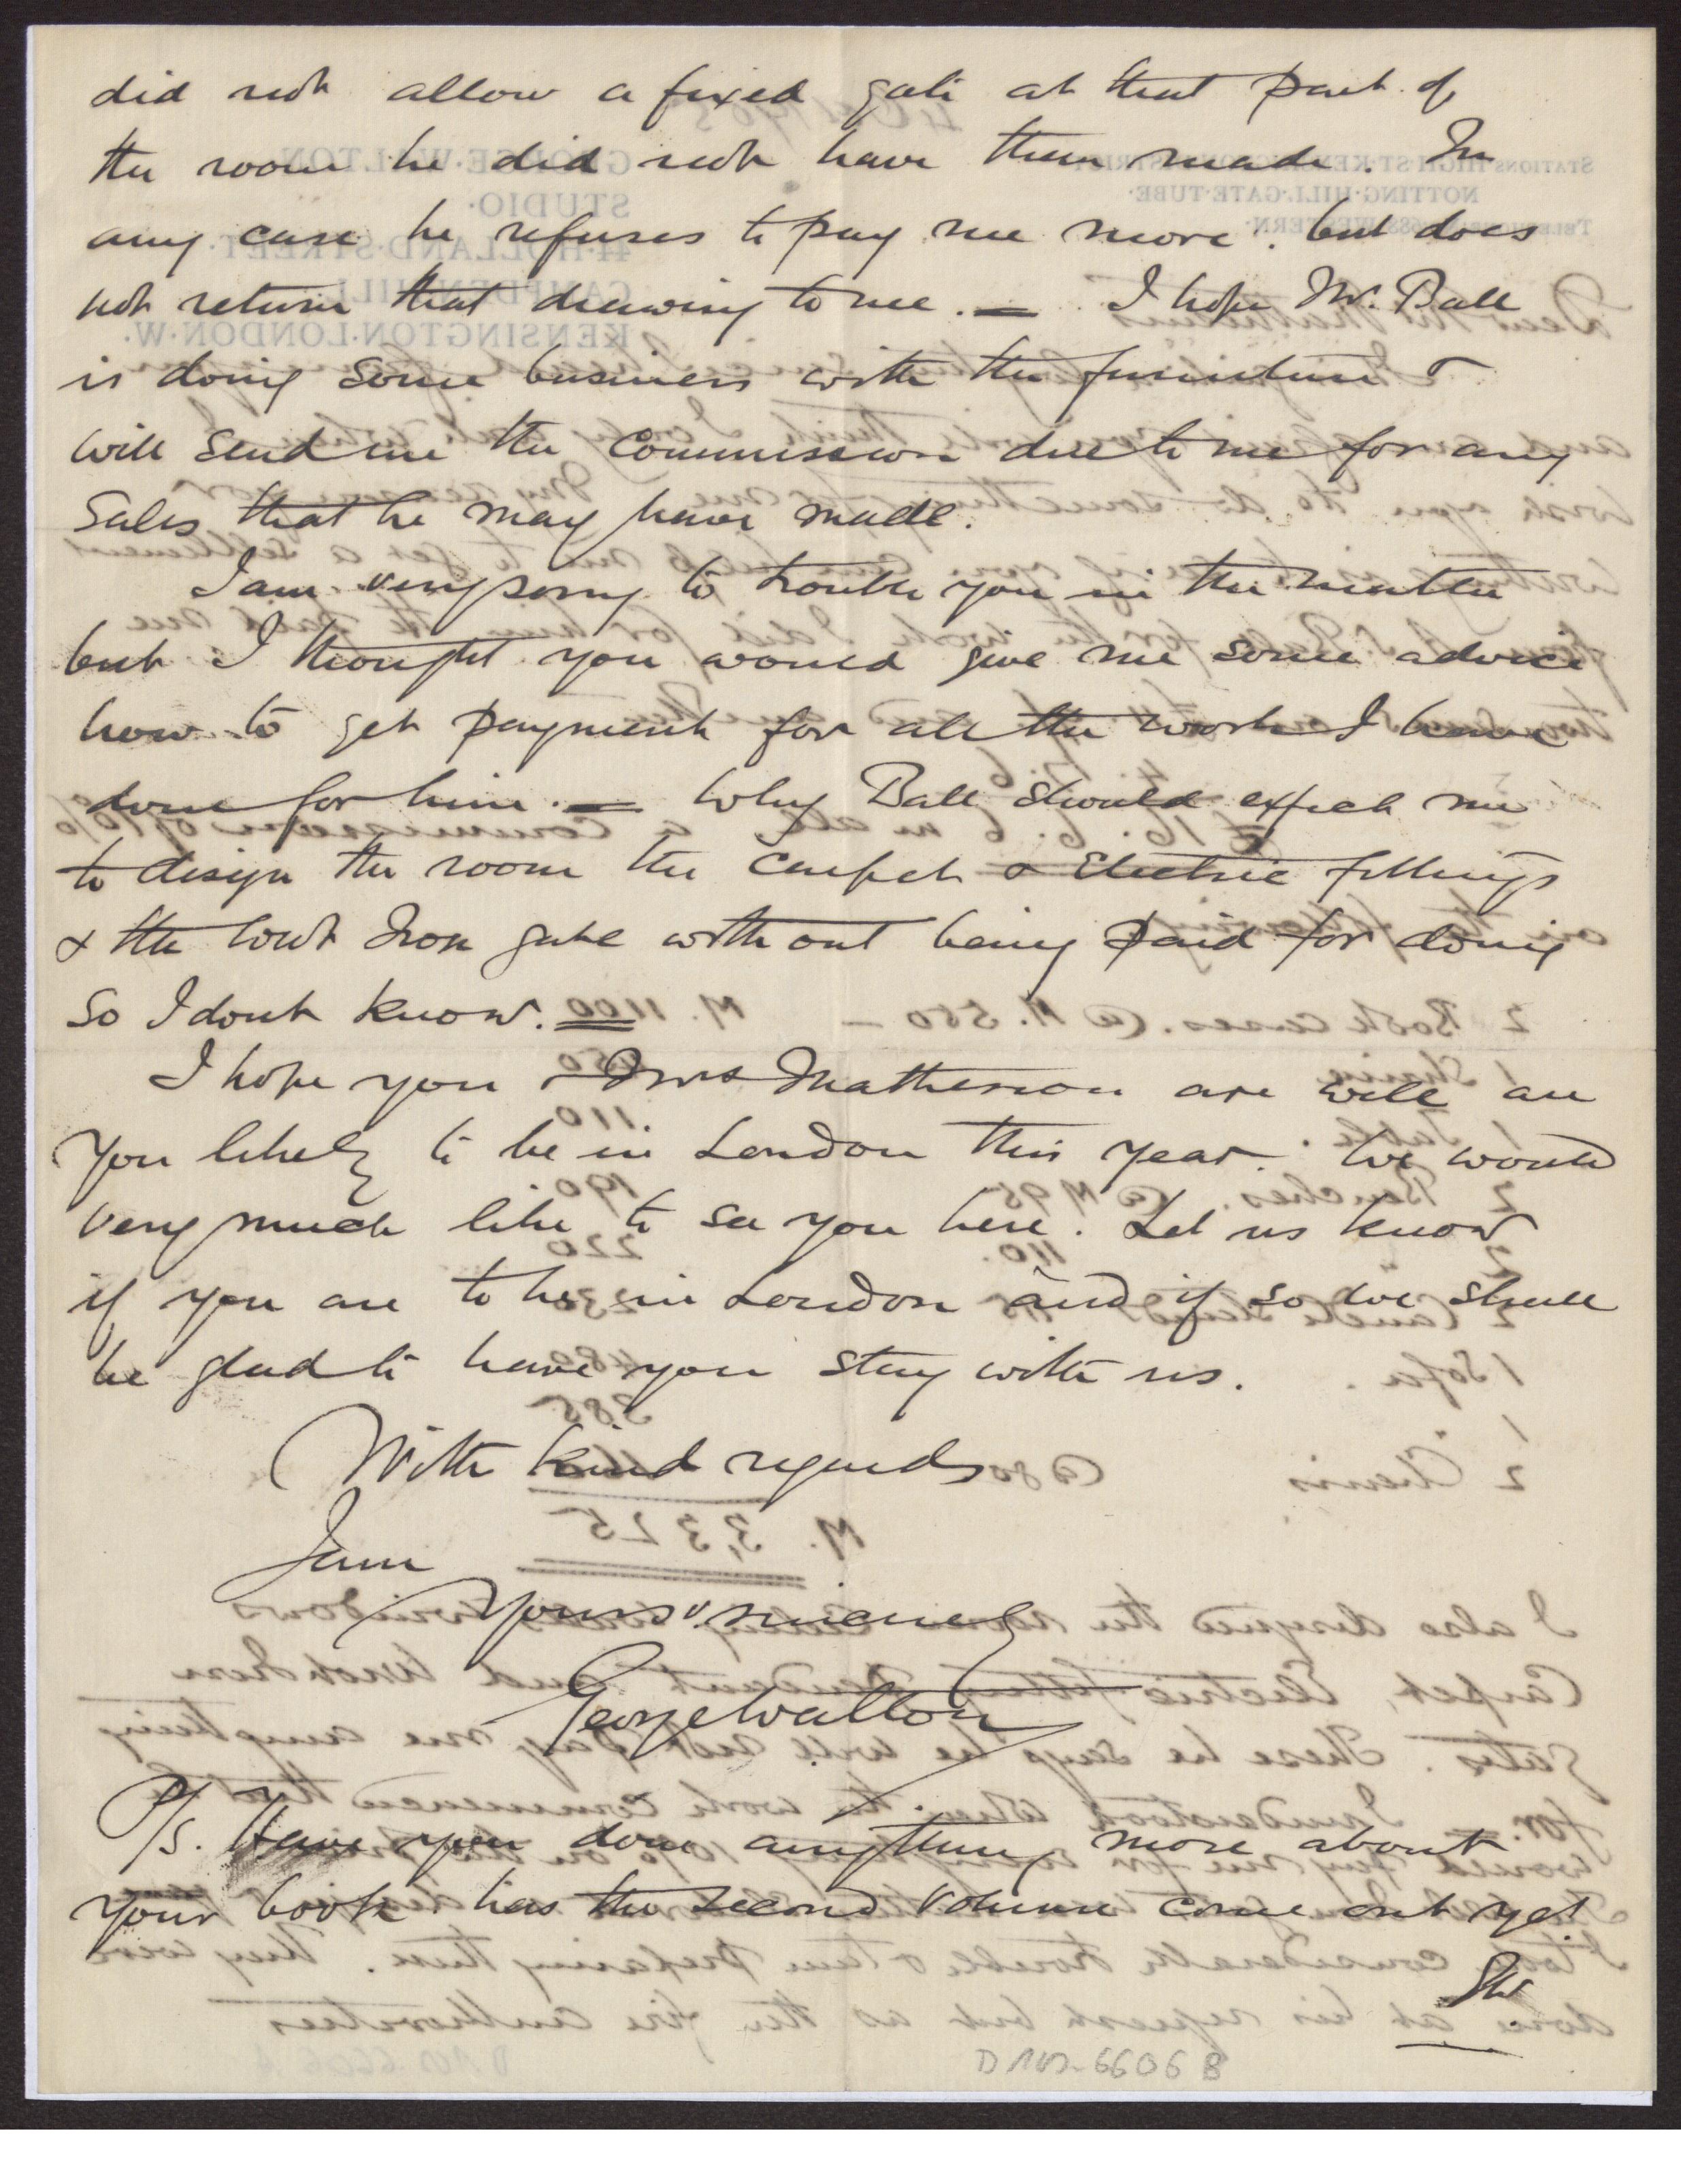 did not allow a fixed gate at that part of
the room he did not have them made. In
any case he refuses to pay me more. but does
not return that drawing to me. — I hope Mr. Ball
is doing some business with the furniture &
will send me the Commission due to me for any
Sales that he may have made.
I am very sorry to trouble you in the matter
but I thought you would give me some advice
how to get payment for all the work I have
done for him. — Why Ball should expect me
to design the room the Carpet & Electric fittings
& the Wrot Iron gate without being paid for doing
so I dont know. —
I hope you & Mrs Mathesion are well are
you likely to be in London this year. We would
very much like to see you here. Let us know
if you are to be in London and if so we shall
be glad to have you stay with us.
With kind regards
I am
Yours sincerely
George Walton
P/S. Have you done anything more about
your book has the second Volume come out yet
GW
D MD-6606 B